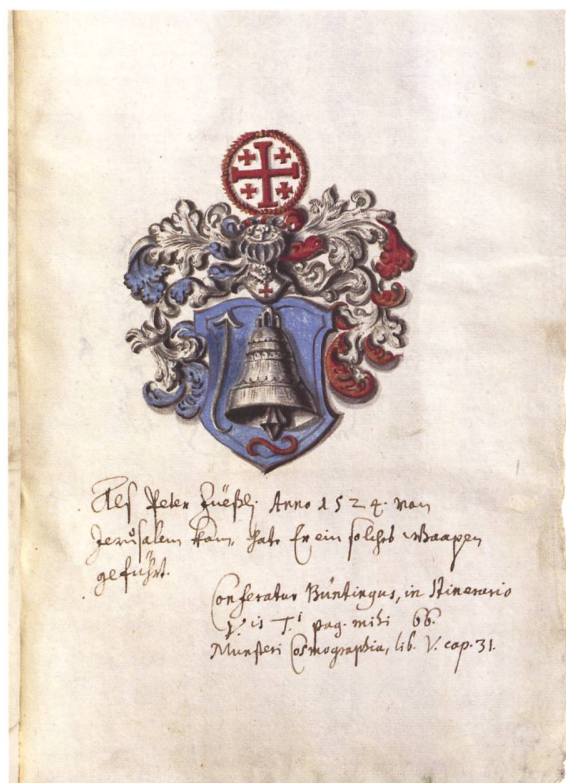 Als Peter Füeßli. Anno 1524. von
Jerusalem kam, hat Er ein solches Waapen
geführt.
Conferatur Büntingus, in Itinerario
V. is T. i pag. mihi 66.
Munsteri Cosmographia, lib. V. cap. 31.